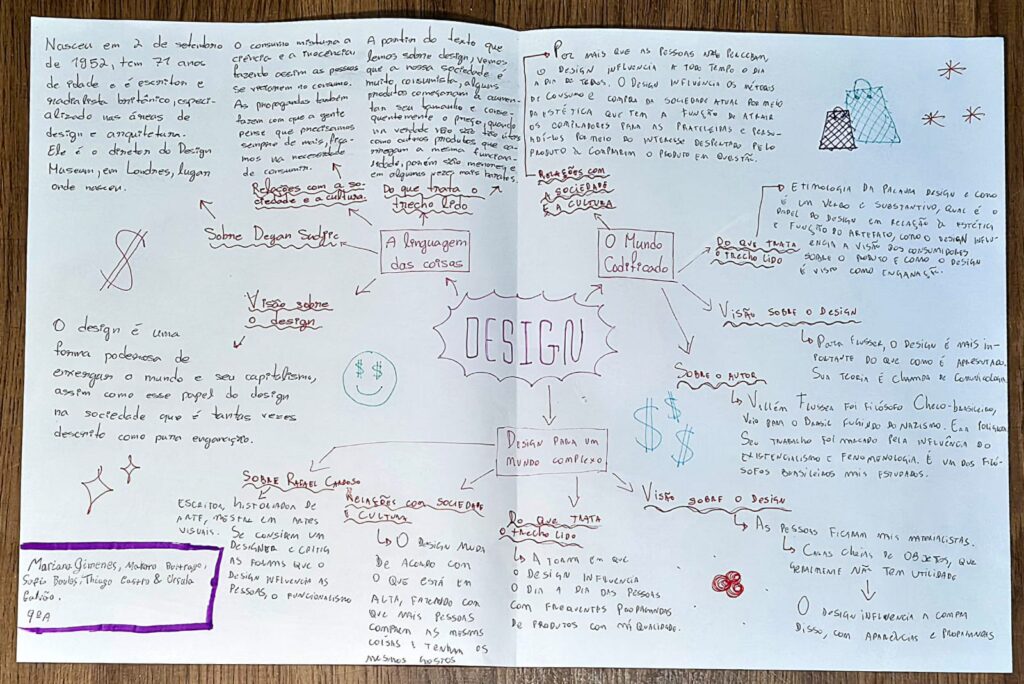 Nasceu em 2 de setembro
de 1952, tem 71 anos
de idade e é escritor e
radialista britânico, especi-
alizado nas áreas de
design e arquitetura.
Ele é o diretor do Design
Museum, em Londres, lugar
onde nasceu.
O consumo mistura a
ciência e a inocência
fazendo assim as pessoas
se viciarem no consumo.
As propagandas também
fazem com que a gente
pense que precisamos
sempre de mais,
mos na necessidade
de consumir.
A partir do texto que
lemos sobre design, vemos
que a nossa sociedade é
muito consumista, alguns
produtos começaram a aumen-
tar seu tamanho e conse-
quentemente o preço, quando
na verdade não são tão úteis
como outros produtos que ca-
rregam a mesma funciona-
lidade, porém são menores e
em algumas vezes mais baratos.
Relações com a so-
ciedade e a cultura.
Do que trata o
trecho lido
Sobre Deyan Sudjic
A linguagem
das coisas
Visão sobre
o design
O design é uma
forma poderosa de
enxergar o mundo e seu capitalismo,
assim como esse papel do design
na sociedade que é tantas vezes
descrito como pura enganação.
DESIGN
Por mais que as pessoas não percebam,
o design influencia a todo tempo o dia
a dia de todos. O design influencia os métodos
de consumo e compra da sociedade atual por meio
da estética que tem a função de atrair
os compradores para as prateleiras e persua-
dí-los por meio do interesse despertado pelo
produto à comprarem o produto em questão.
Relações com
a sociedade
e a cultura
O Mundo
Codificado
Do que trata
o trecho lido
Etimologia da palavra design e como
é um verbo e substantivo, qual é o
papel do design em relação à estética
e função do artefato, como o design influ-
encia a visão dos consumidores
sobre o produto e como o design
é visto como enganação.
Visão sobre o Design
Para Flusser, o design é mais im-
portante do que como é apresentado.
Sua teoria é chamada de comunicologia
Sobre o autor
Vilém Flusser foi filósofo Checo-brasileiro,
veio para o Brasil fugindo do nazismo. Era poliglota
Seu trabalho foi marcado pela influência do
existencialismo e fenomenologia. É um dos filó-
sofos brasileiros mais estudados.
Design para um
mundo complexo
Sobre Rafael Cardoso
Escritor, historiador de
arte, mestre em artes
visuais. Se considera um
designer e critica
as formas que o
design influencia as
pessoas, o funcionalismo
Relações com sociedade
e cultura
O design muda
de acordo com
o que está em
alta, fazendo com
que mais pessoas
comprem as mesmas
coisas e tenham os
mesmos gostos
Do que trata
o trecho lido
A forma em que
o design influencia
o dia a dia das pessoas
com frequentes propagandas
de produtos com má qualidade.
Visão sobre o design
As pessoas ficaram mais materialistas.
Casas cheias de objetos, que
geralmente não tem utilidade
O design influencia a compra
disso, com aparências e propagandas
Mariana Gimenes,
Sofia Thiago Castro & Úrsula
Galvão.
9ºA